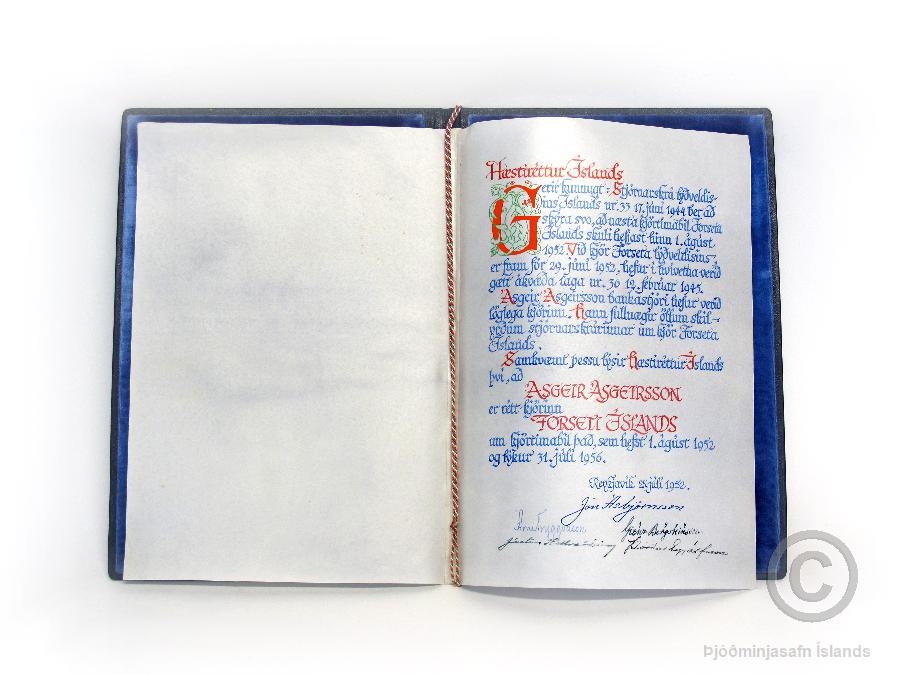 Hæstiréttur Íslands
Gerir kunnugt: Stjórnarskrá lýðveldis-
ins Íslands nr. 33 17. júní 1944 ber að
skýra svo, að næsta kjörtímabil Forseta
Íslands skuli hefjast hinn 1. ágúst
1952. Við kjör Forseta lýðveldisins,
er fram fór 29. júní 1952, hefur í hvívetna verið
gætt ákvæða laga nr. 36 12. febrúar 1945.
Ásgeir Ásgeirsson bankastjóri hefur verið
löglega kjörinn. Hann fullnægir öllum skil-
yrðum stjórnarskrárinnar um kjör Forseta
Íslands.
Samkvæmt þessu lýsir Hæstiréttur Íslands
því, að
ÁSGEIR ÁSGEIRSSON
er rétt kjörinn
FORSETI ÍSLANDS
um kjörtímabil það, sem hefst 1. ágúst 1952
og lýkur 31. júlí 1956.
Reykjavík júlí 1952.
Jón Ásbjörnsson
Árni Tryggvason
©
Þjóðminjasafn Íslands